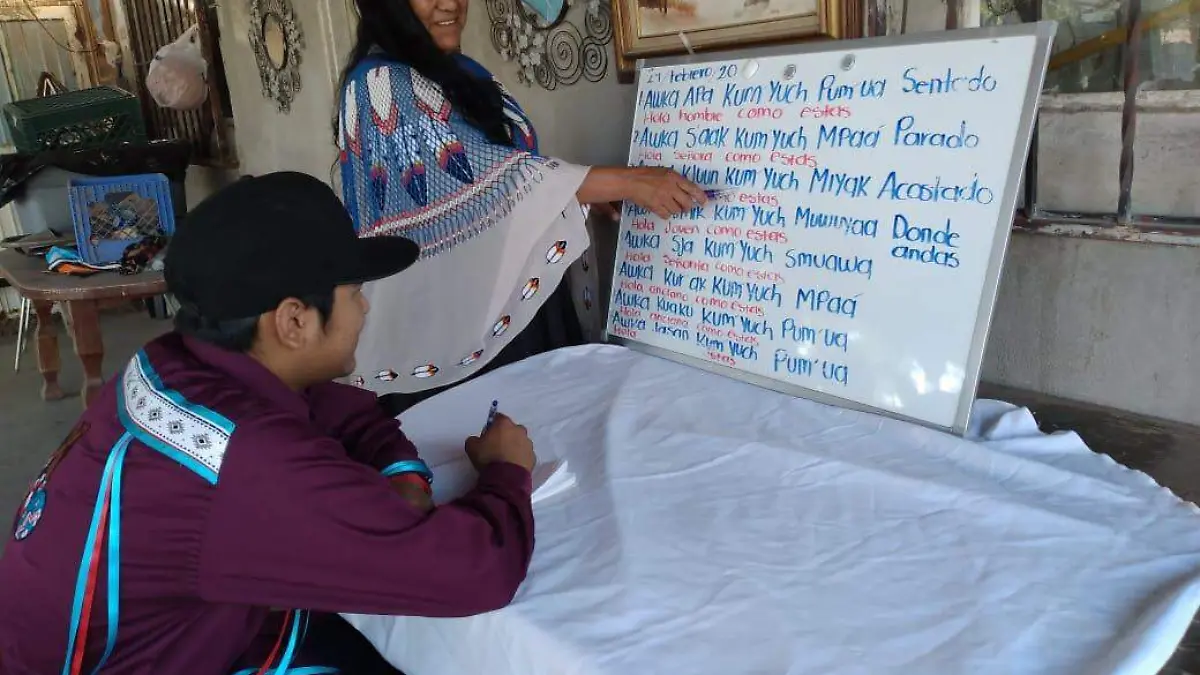 21 febrero 20
1 Awka Apa Kum Yuch Pum'ua Sentado
Hola hombre como estas
2 Awka Saak Kum Yuch MPaá Parado
Hola Señora como estas
Kum Yuch Miyak Acostado
estas
Kum Yuch Muwiyaa Donde andas
Hola Joven como estas
Awka Sja Kum Yuch Smuawa
Hola Señorita como estas
Awka Kur ak Kum Yuch MPaá
Hola anciano como estas
Awka Kuaku Kum Yuch Pum'ua
Hola anciana como estas
Awka Jasan Kum Yuch Pum'ua
Hola estas